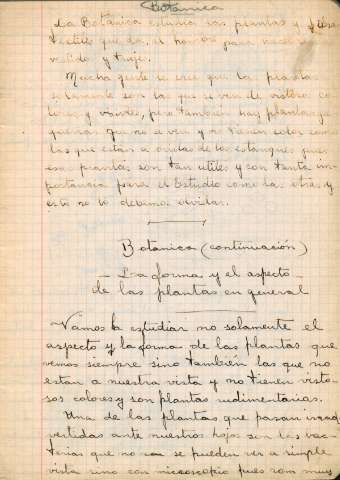 Botanica
La Botánica estudia las plantas y fibra
textil que da, el hombre para hacerse
vestido y traje.
Mucha gente se cree que las plantas
solamente son las que se ven de vistosos co
lores y verdes, pero también hay plantas pe
queñas que no se ven y no tienen color como
las que estan a orillas de los estanques pues
esas plantas son tan utiles y son tanta im
portancia para el Estudio como las otras y
esto no lo debemos olvidar.
Botanica (continuación)
La forma y el aspecto
de las plantas en general
Vamos ha estudiar no solamente el
aspecto y la forma de las plantas que
vemos siempre sino también las que no
estan a nuestra vista y no tienen visto
sos colores y son plantas rudimentarias.
Una de las plantas que pasan inad
vertidas ante nuestros hojos son las bac
terias que no se pueden ver a simple
vista sino con microscopio pues son muy